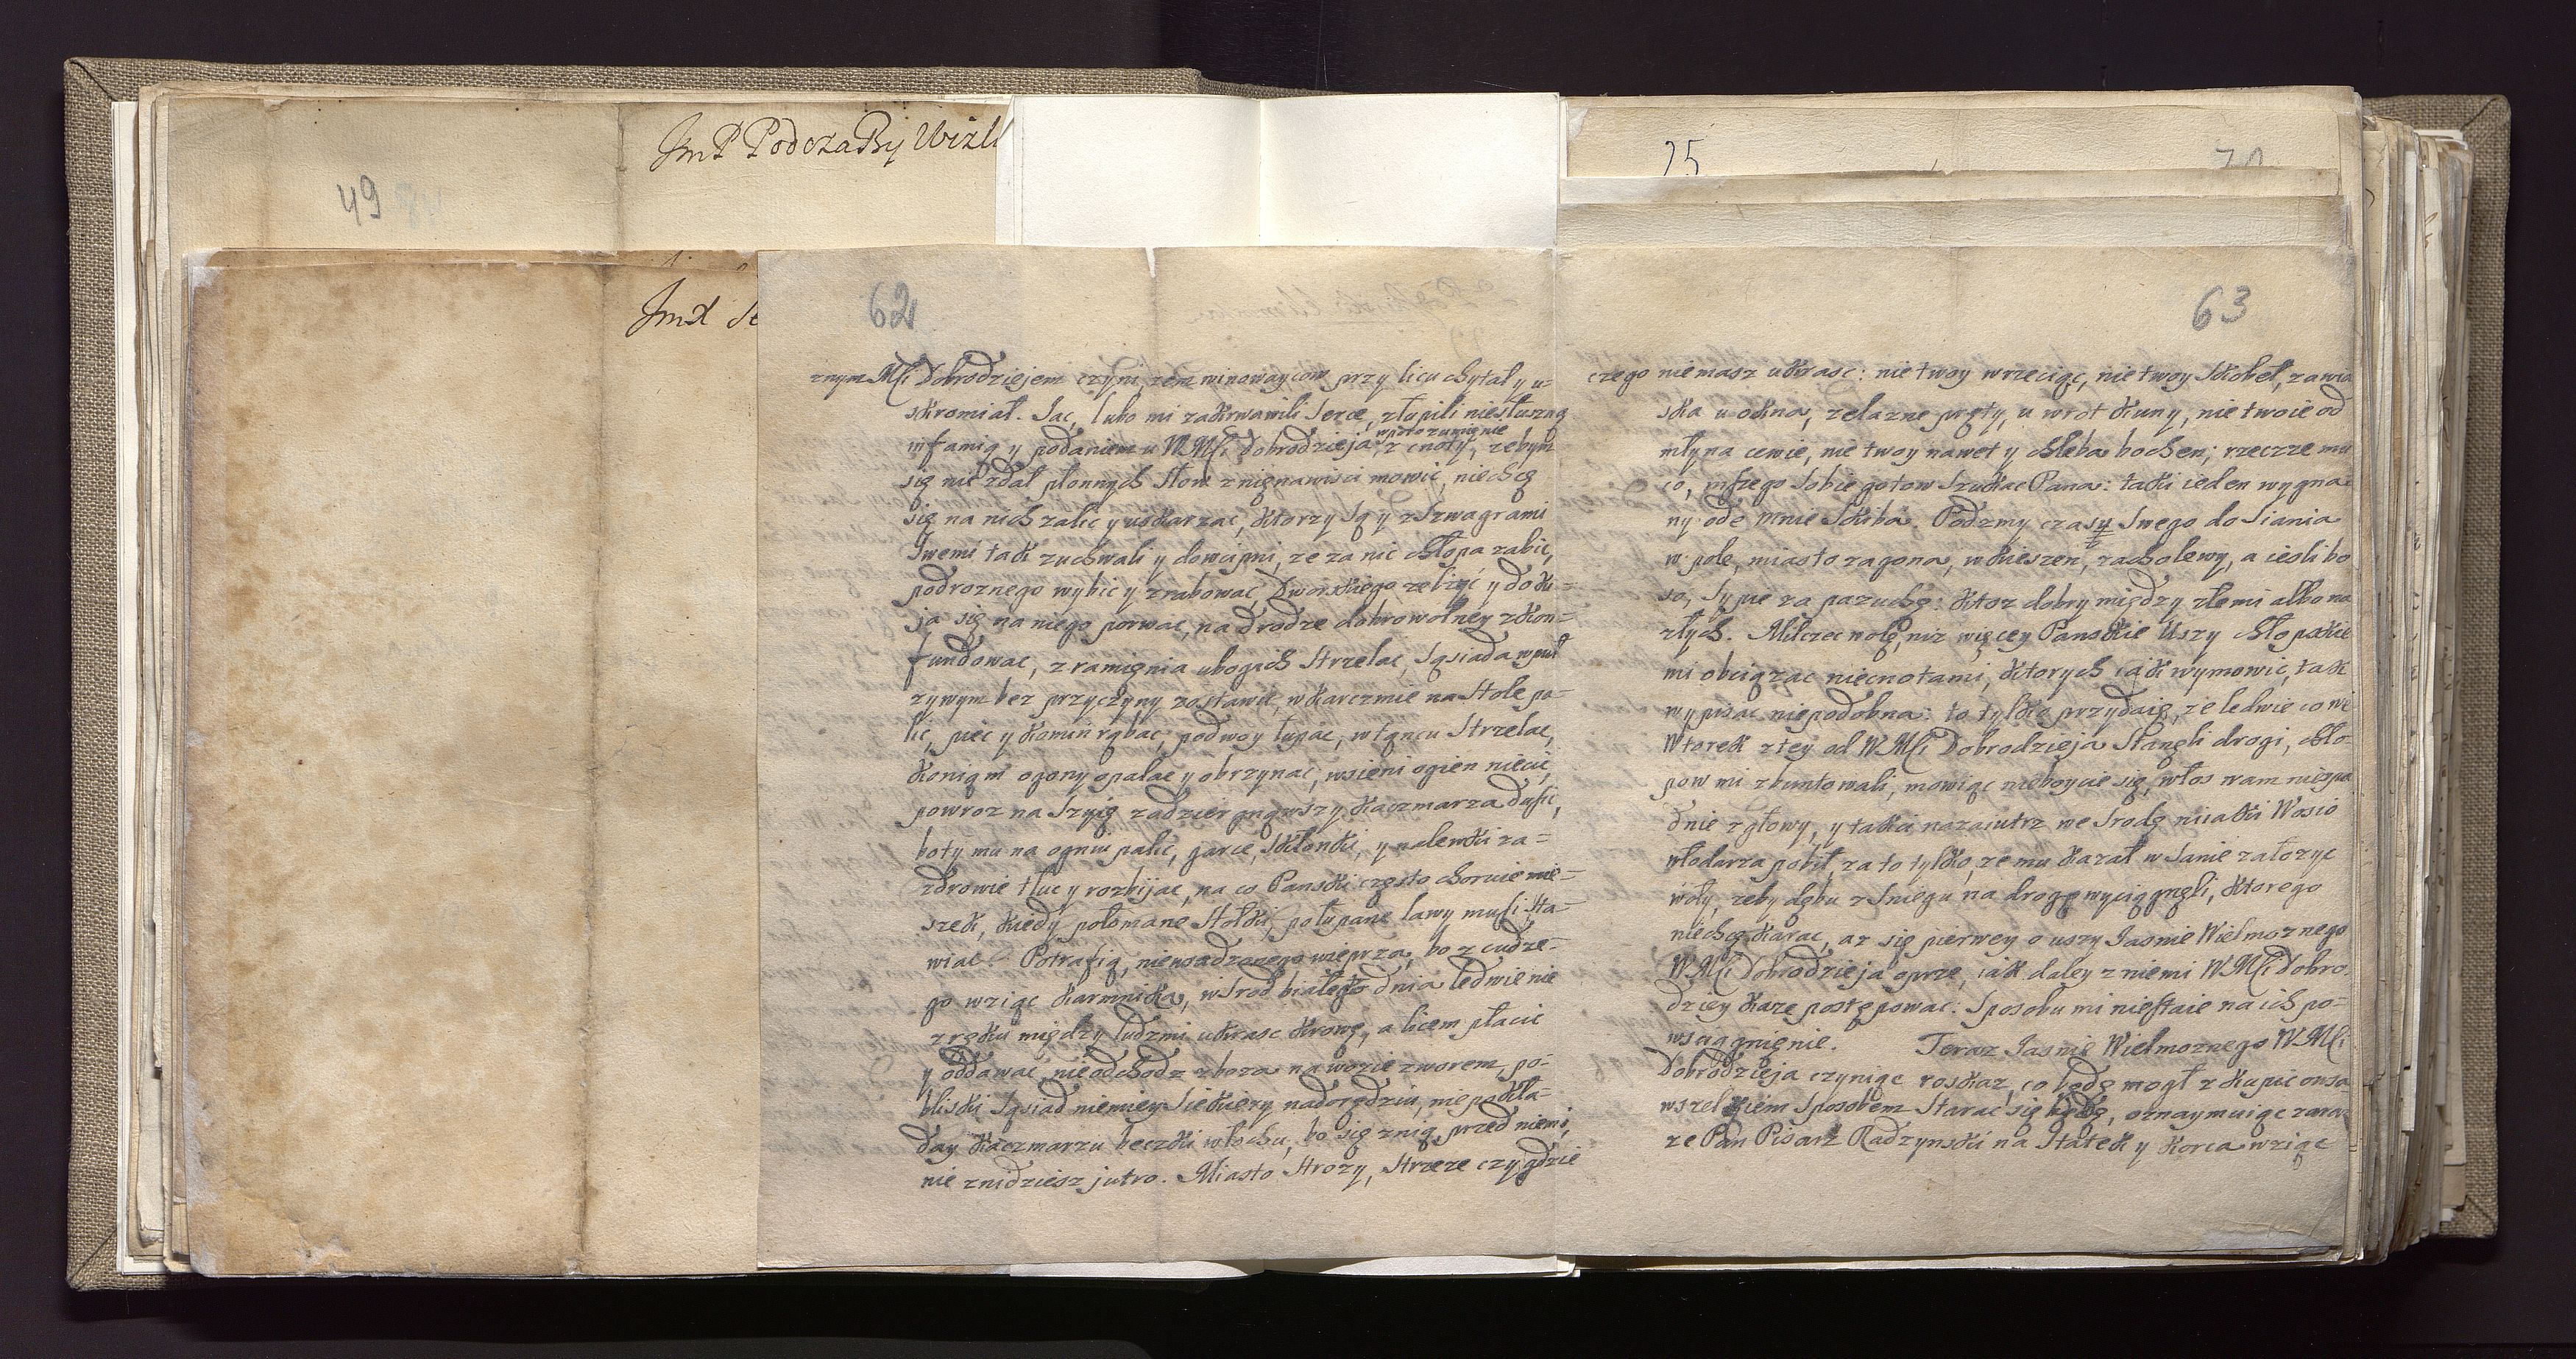 Jm P Podczaszy Wizk
49
Jmx Se
62
znym Mści Dobrodziejem czyni, zem winowaycow przy licu chytał y u=
skromiał. Jac, lubo mi zakrwawili serce, złupili niesłuszną
infamią y podaniem u WMści Dobrodzieja, wporozumięnie z cnoty, zebym
się nie zdał płonnych słow z nięnawisci mowic, niechcę
się na nich zalic y uskarzac, ktorzy są y z szwagrami
swemi tak zuchwali y dowcipni, ze za nic chłopa zabic,
podroznego wybic y zrabowac, Dworskiego zelzyć y do ki=
ja się na niego porwac, na drodze dobrowolney zkon=
fundowac, z ramięnia ubogich strzelac, sąsiada wpuł
zywym bez przyczyny zostawic, w karczmie na stole pa=
lic, piec y komin rąbac, podwoy łupac, w tąncu strzelac,
konięm ogony opalac y obrzynac, w sieni ogien niecic,
powroz na szyię zadziergnąwszy kaczmarza dusic,
boty mu na ogniu palic, garce, sklonki, y nalewki za=
zdrowie tłuc y rozbijac, na co Panski często choruie mie=
szek, kiedy połomane stołki, połupane lawy musi sta=
wiac. Potrafią, niewsadzonego wieprza, bo z cudze=
go wziąc karmnika, wsrod białego dnia ledwie nie
z ręku między ludzmi ukrasc krowę, a licem płacic
y oddawac, nieodchodz zboza na wozie z worem, po=
bliski sąsiad niemiey siekiery nadorędziu, nie pokła=
day kaczmarzu beczki włochu, bo się znią przed niemi,
nie znidziesz jutro. Miasto strozy, strzeze czy gdzie
75
70
63
czego niemasz ukrasc: nie twoy wrzeciąc, nie twoy skobel, zawia
ska u okna, zelazne pręty, u wrot kuny, nie twoie od
młyna cewie, nie twoy nawet y chleba bochen; rzecze mu
co, inszego sobie gotow szukac Pana: taki ieden wygna=
ny ode mnie skiba. Podzmy czasu swego do siania
w pole, miasto zagona, w kieszen, zacholewy, a iesli bo
so, sypie za pazuchę: ktoz dobry między złemi albo na
złych. Milczec wolę, niz więcey Panskie uszy chłopskie
mi obciązac niecnotami, ktorych iak wymowic, tak
wypisac niepodobna: to tylko przydaię, ze ledwie co we
Wtorek z tey od WMści Dobrodzieja stanęli drogi, chło=
pow mi zbuntowali, mowiąc nieboycie się, włos wam niespa
dnie z głowy, y takci nazaiutrz we Srodę niiaki Wosio
włodarza pobił, za to tylko, ze mu kazał w sanie załozyc
woły, zeby dębu z sniegu na drogę wyciągnęli, ktorego
niechcę karac, az się pierwey o uszy Jasnie Wielmoznego
WMści Dobrodzieja oprze, iak daley z niemi WMści Dobro=
dziey kaze postępowac: sposobu mi niestaie na ich po=
wsciągnięnie. Teraz Jasnie Wielmoznego WMści
Dobrodzieja czyniąc roskaz, co będę mogł zkupic owsa
wszelkiem sposobem starac się będę, oznaymuiąc zaraz
ze Pan Pisarz Radzynski na statek y korca wziąc